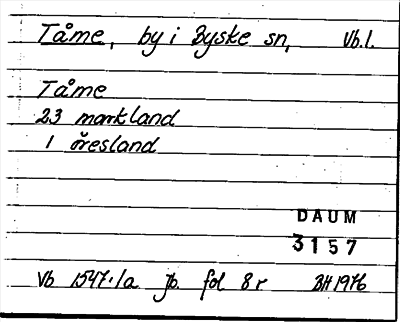 Tåme, by i Byske sn, Vb.l.
Tåme
23 markland
1 öresland
DAUM
3157
Vb 1547:1a jb. fol 8r BH 1976